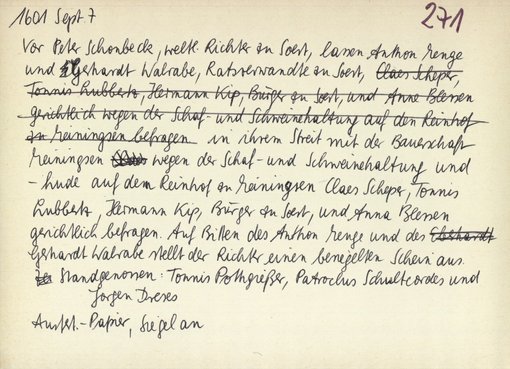 1601 Sept. 7
271
Vor Peter Schonbeck, weltl. Richter zu Soest, lassen Anthon Menge
und Gerhardt Walrabe, Ratsverwandte zu Soest, Claes Scheper,
Tonnis Lubbertz, Hermann Kip, Bürger zu Soest, und Anne Blessen
gerichtlich wegen der Schaf- und Schweinehaltung auf den Reinhof
zu Meiningsen befragen in ihrem Streit mit der Bauerschaft
Meiningsen wegen der Schaf- und Schweinehaltung und
-hude auf dem Reinhof zu Meiningsen Claes Scheper, Tonnis
Lubbertz, Hermann Kip, Bürger zu Soest, und Anna Blessen
gerichtlich befragen. Auf Bitten des Anthon Menge und des Eberhardt
Gerhardt Walrabe stellt der Richter einen besiegelten Schein aus.
Standgenossen: Tonnis Pothgießer, Patroclus Schultcordes und
Jorgen Drexes
Ausf.-Papier, Siegel an